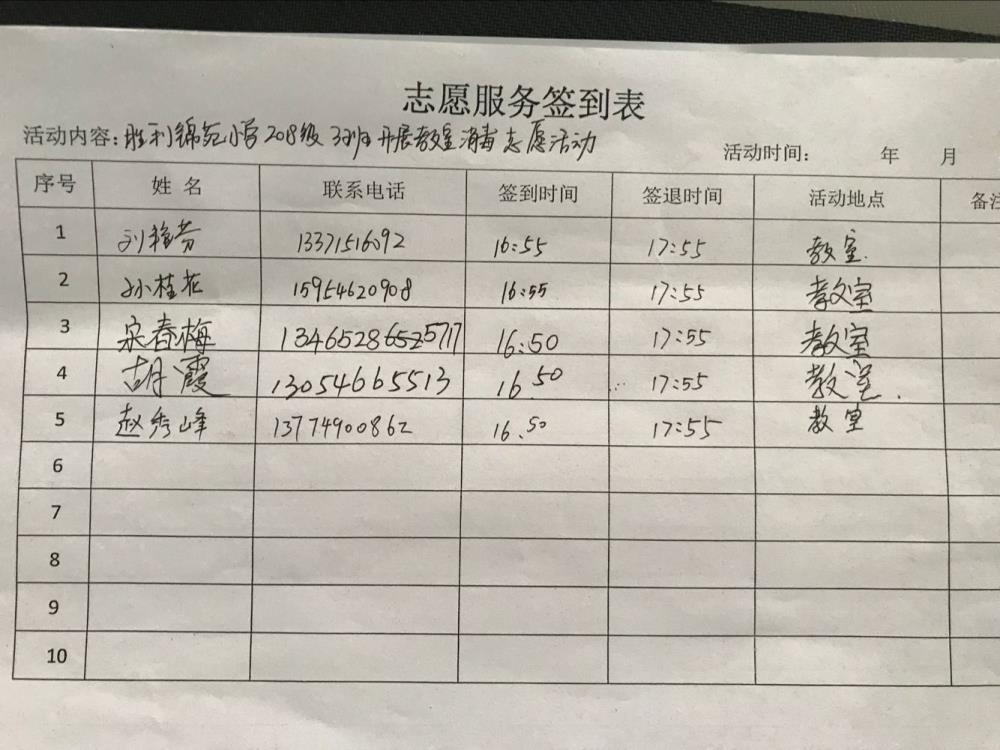 志愿服务签到表
活动内容：胜利锦苑小学208级 3班开展教室消毒志愿活动
活动时间： 年 月
序号 姓名 联系电话 签到时间 签退时间 活动地点 备注
1 刘 芳 13371516092 16:55 17:55 教室.
2 孙桂花 15954620908 16:55 17:55 教室
3 宋春梅 17:55 16:50 教室
4 胡霞 13054665513 16 50 17:55 教室.
5 赵秀峰 13774900862 16.50 17:55 教室
6
7
8
9
10